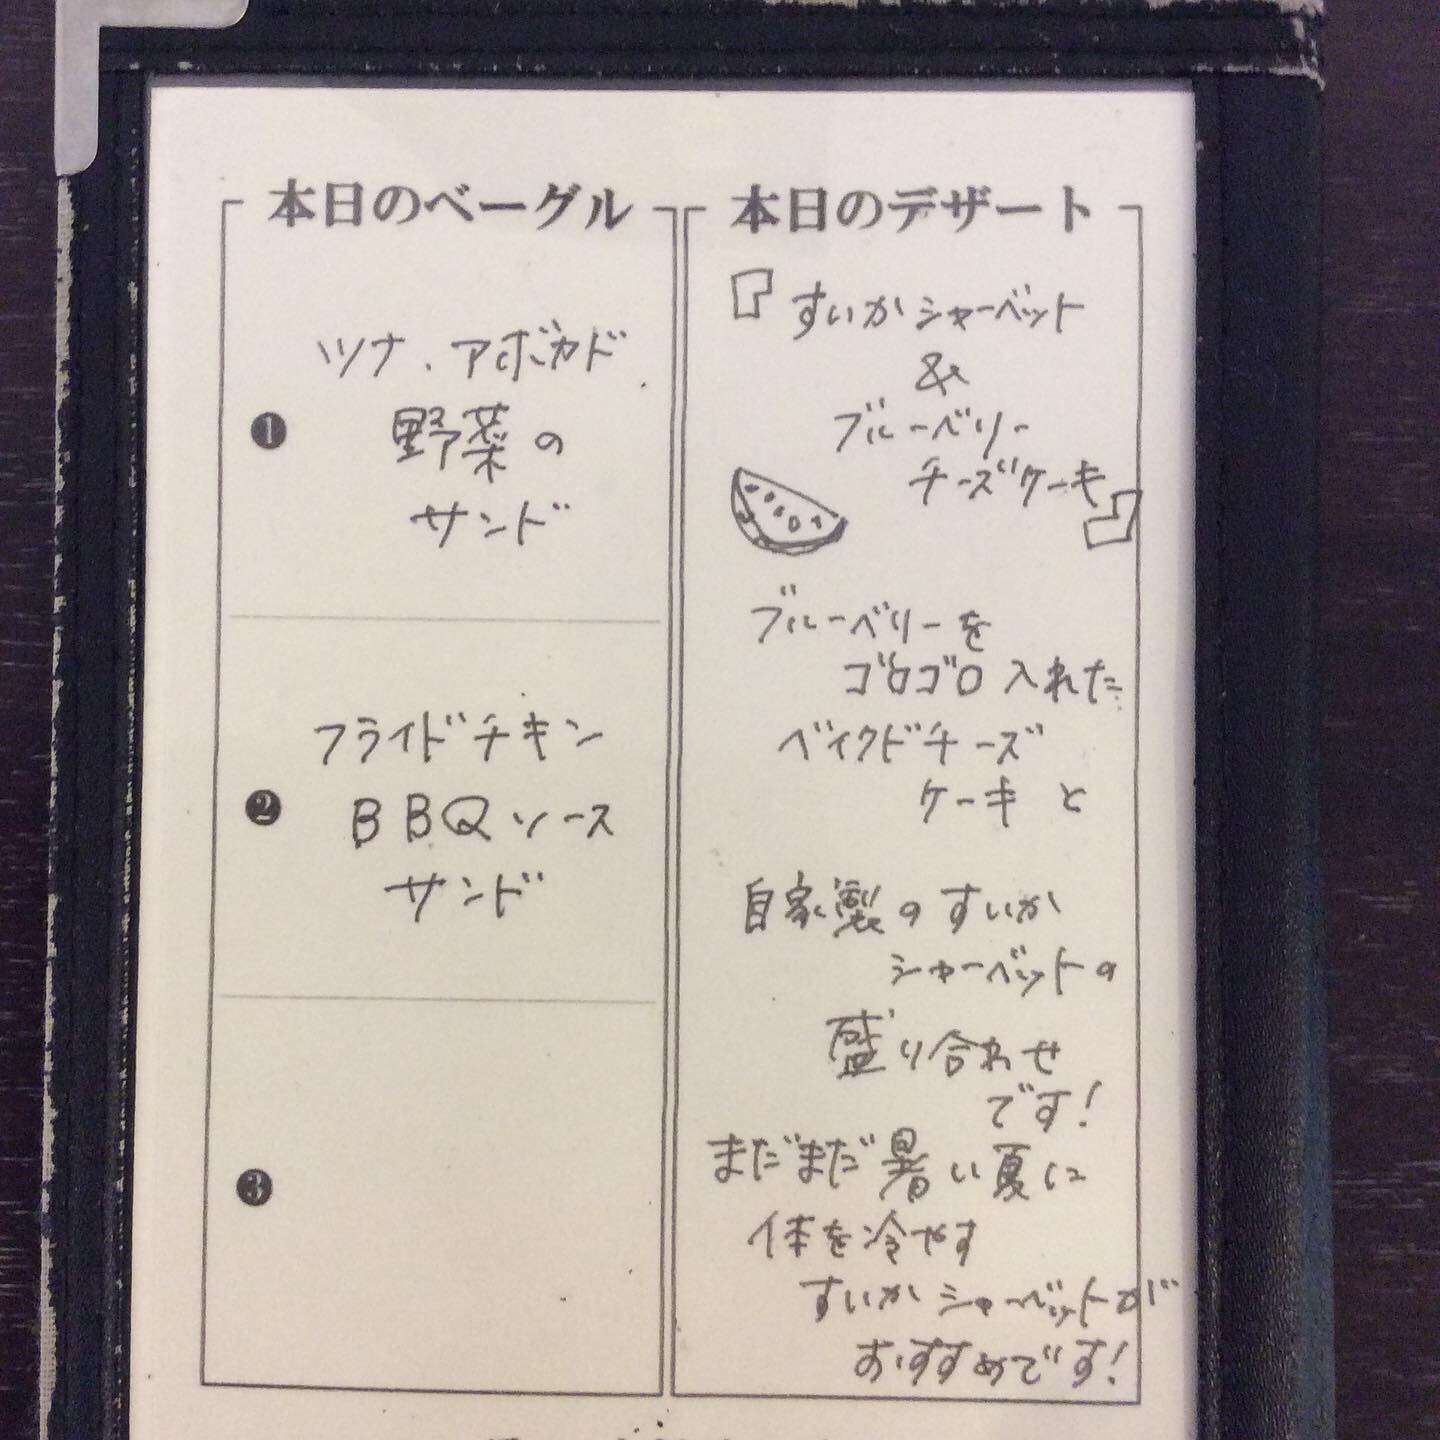 本日のベーグル
❶
ツナ、アボカド
野菜の
サンド
❷
フライドチキン
BBQソース
サンド
❸
本日のデザート
『すいかシャーベット
&
ブルーベリー
チーズケーキ』
ブルーベリーを
ゴロゴロ入れた
ベイクドチーズ
ケーキと
自家製のすいか
シャーベットの
盛り合わせ
です!
まだまだ暑い夏に
体を冷やす
すいかシャーベットが
おすすめです!